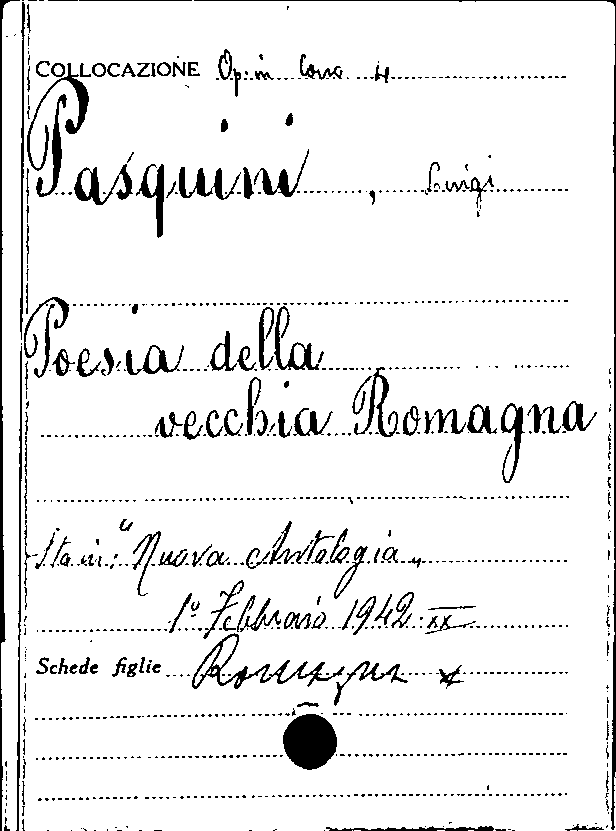 COLLOCAZIONE Op. in Cons 4
Pasquini, Luigi
Poesia della
vecchia Romagna
Sta in: "Nuova Antologia„
1° Febbraio 1942. XX
Schede figlie Romagna x